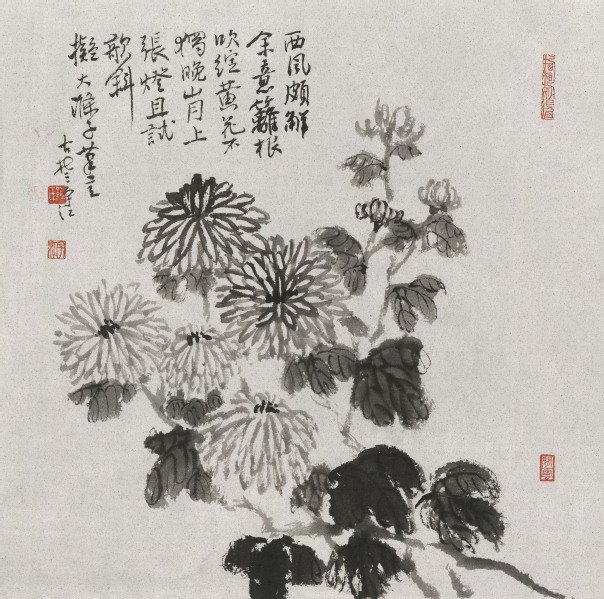 西風頗解
余意籬根
吹綻黃花不
獨晚山月上
張燈且試
欹斜
擬大滌子筆意
古楚